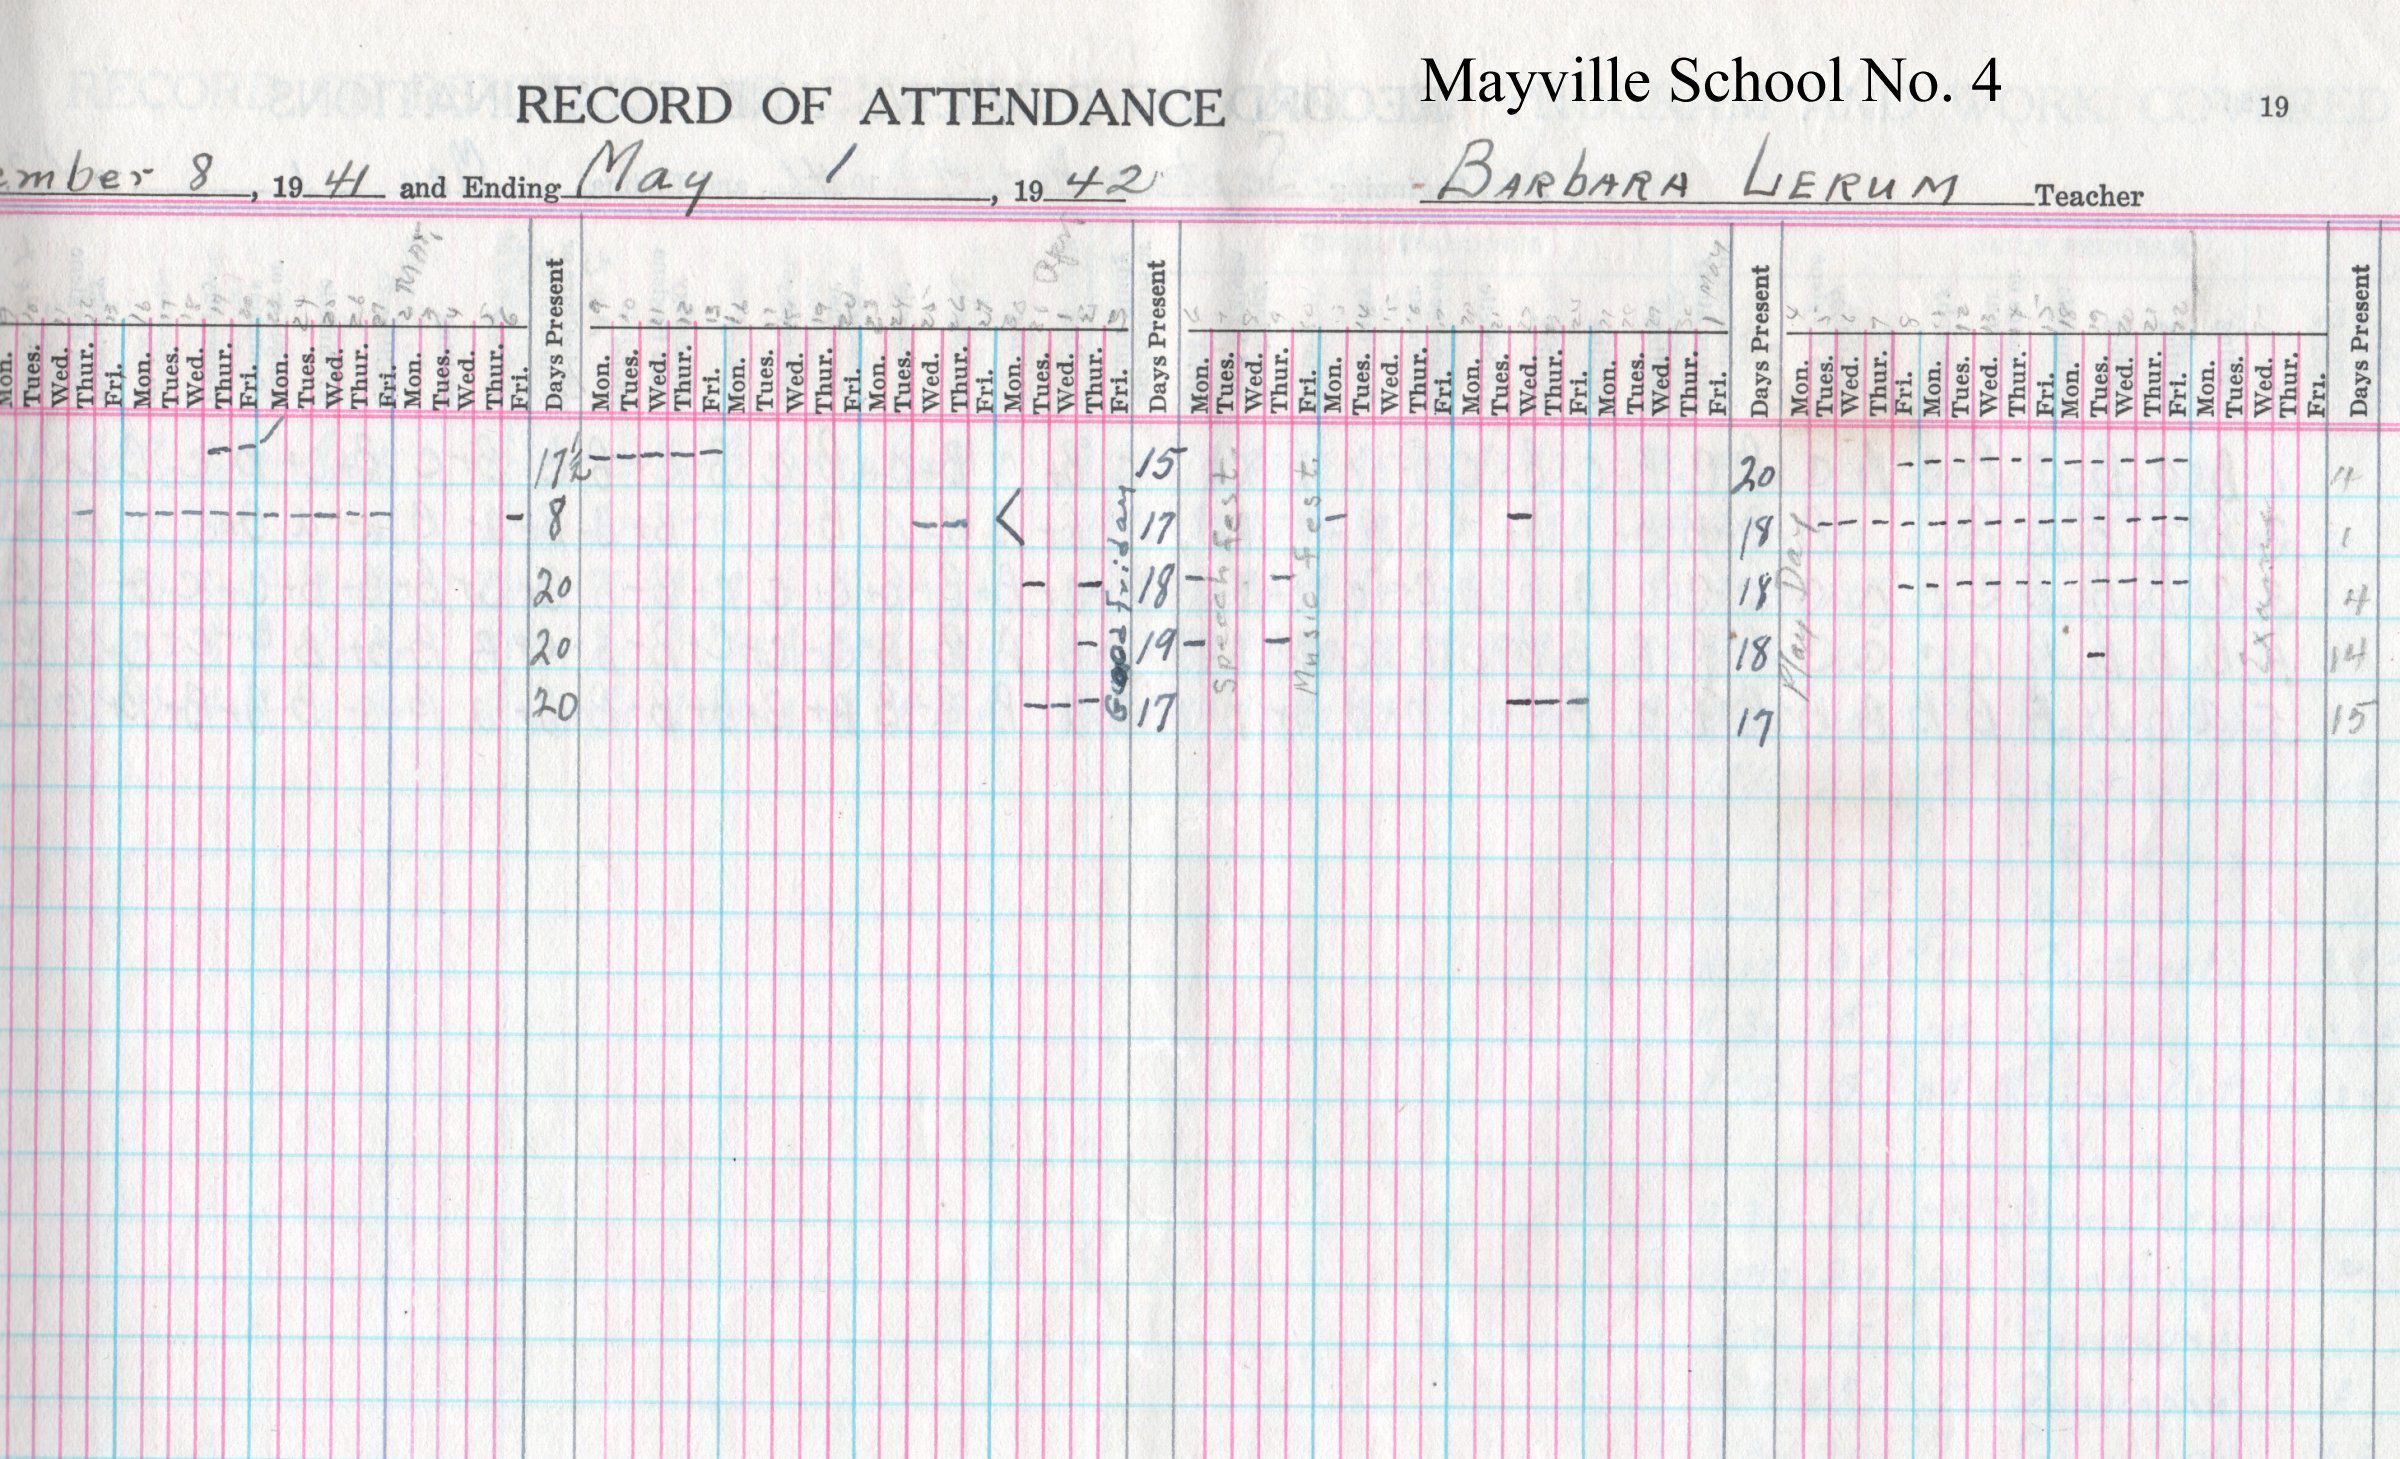 RECORD OF ATTENDANCE Mayville School No. 4 19
ember 8, 1941 and Ending May 1, 1942 BARBARA LERUM Teacher
Mar. Apr. 1 May
Mon. Tues. Wed. Thur. Fri. Mon. Tues. Wed. Thur. Fri. Mon. Tues. Wed. Thur. Fri. Mon. Tues. Wed. Thur. Fri. Days Present Mon. Tues. Wed. Thur. Fri. Mon. Tues. Wed. Thur. Fri. Mon. Tues. Wed. Thur. Fri. Mon. Tues. Wed. Thur. Fri. Days Present Mon. Tues. Wed. Thur. Fri. Mon. Tues. Wed. Thur. Fri. Mon. Tues. Wed. Thur. Fri. Mon. Tues. Wed. Thur. Fri. Days Present Mon. Tues. Wed. Thur. Fri. Mon. Tues. Wed. Thur. Fri. Mon. Tues. Wed. Thur. Fri. Mon. Tues. Wed. Thur. Fri. Days Present
17½ 15 20 4
8 17 18 1
20 18 18 4
20 19 18 14
20 17 17 15
Good Friday
Speech fest.
Music fest.
Play Day
Exams